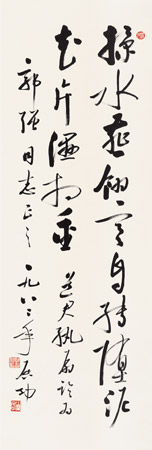 掠水燕翎寒自转堕泥
花片湿相重 道君纨扇诗句
郭强同志正之
一九八二年 启功